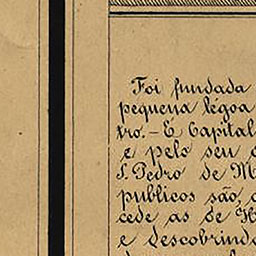 Foi fundada
pequena légoa
tro. - É Capital
e pelo seu
S. Pedro de M
publicos são,
cede as de
e descobrind